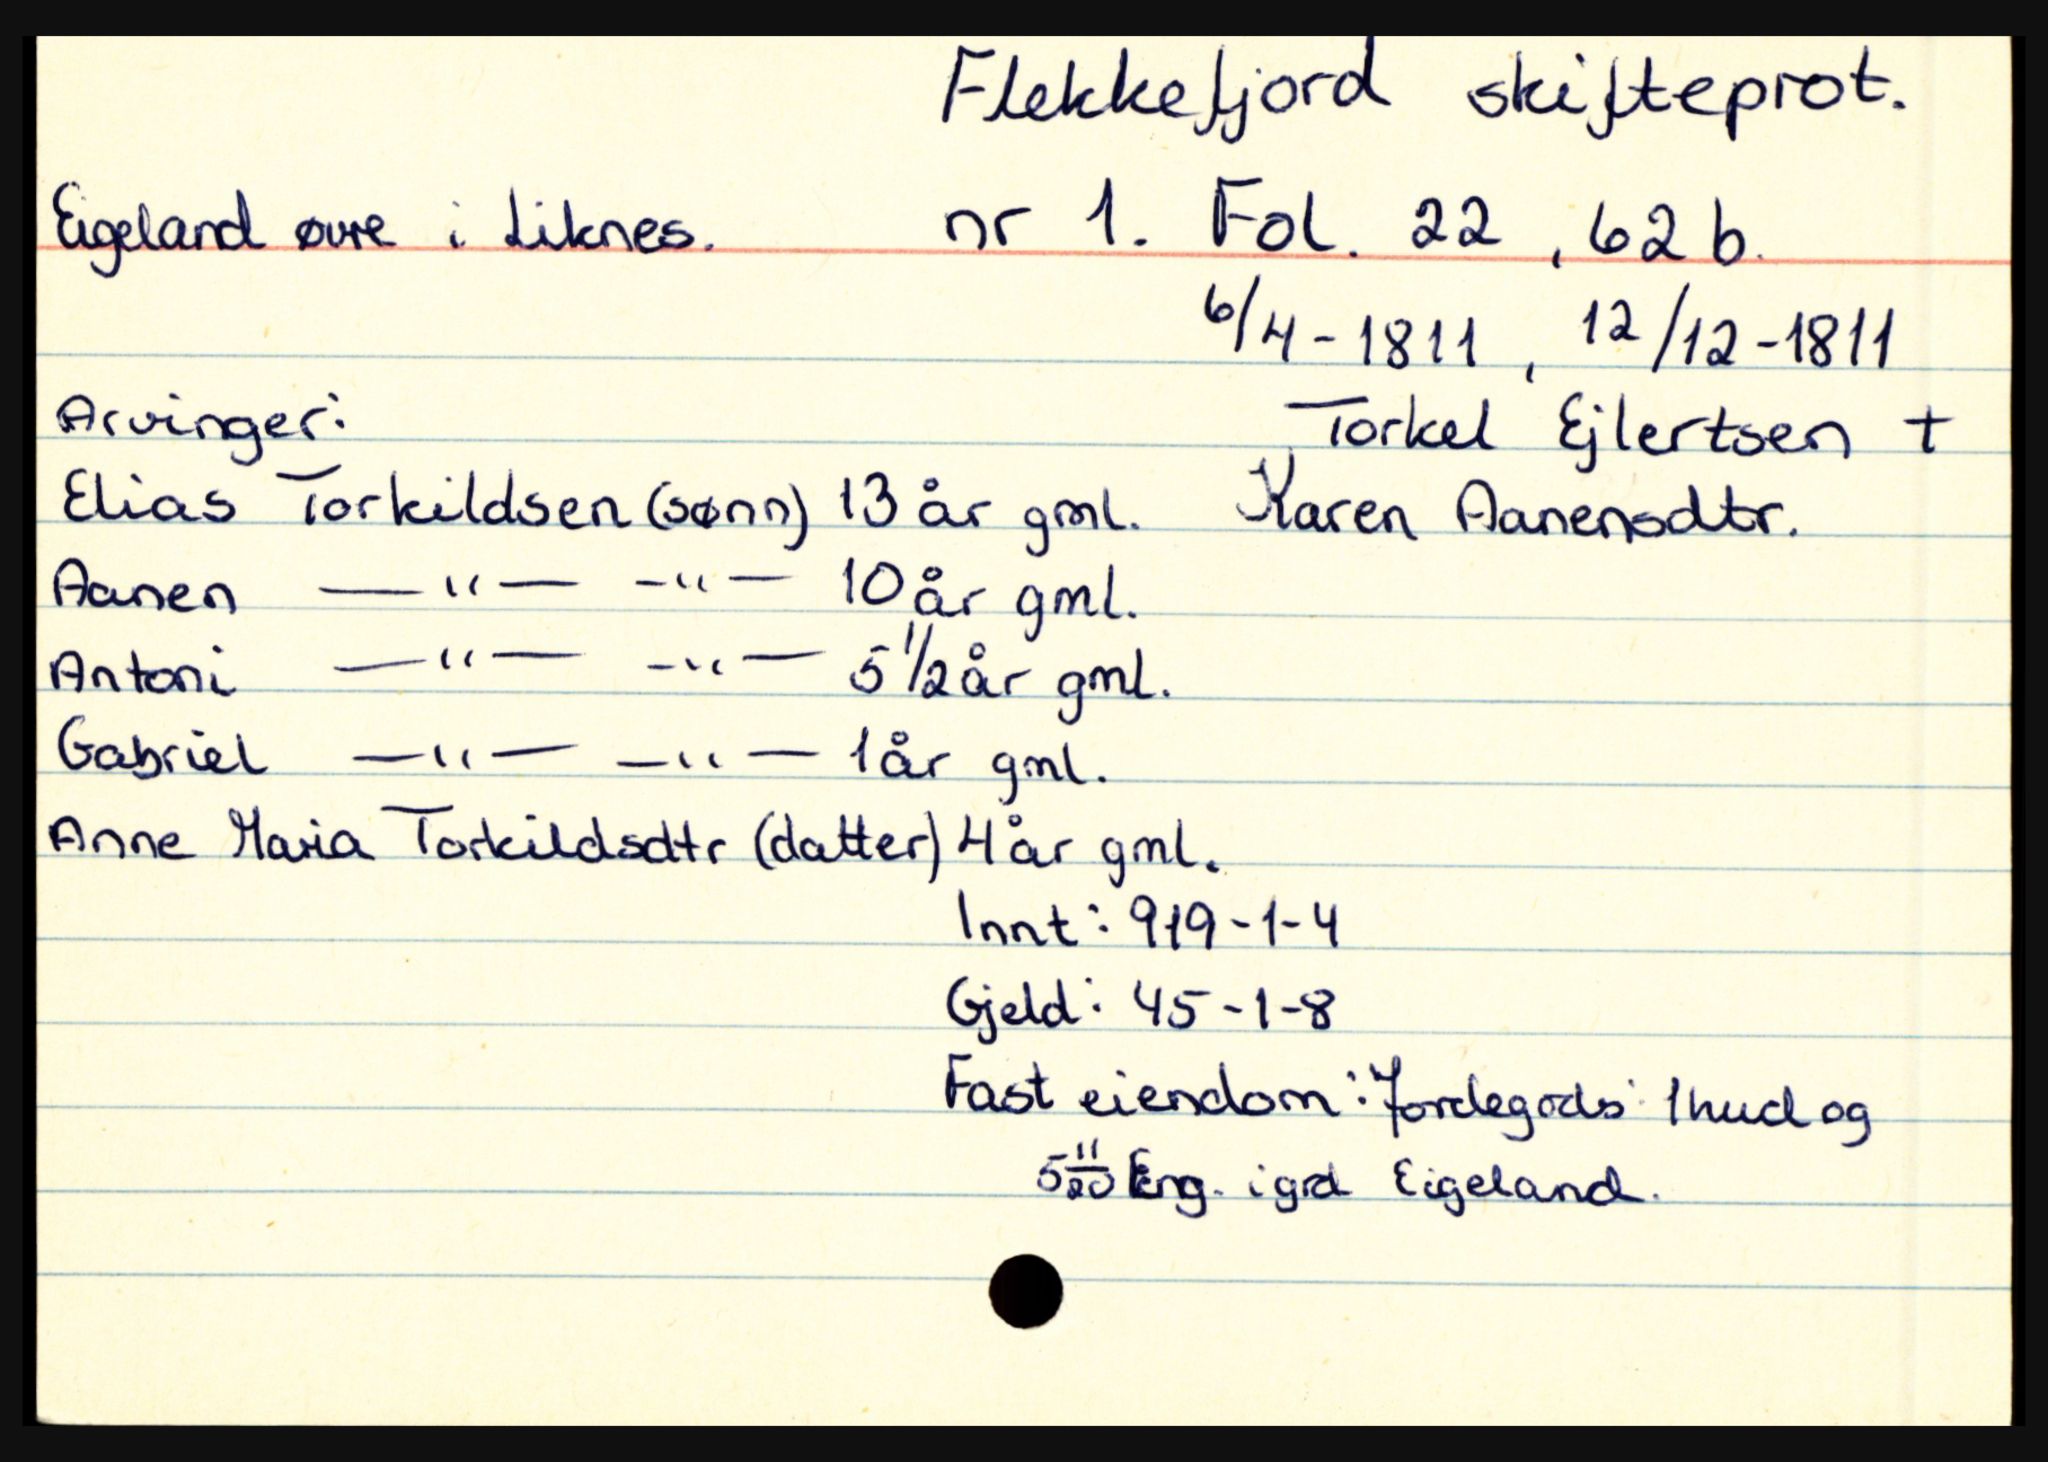 Flekkefjord skifteprot.
Eigeland øvre i Liknes. nr 1. Fol. 22, 62 b.
6/4-1811, 12/12-1811
Arvinger: Torkel Ejlertsen +
Elias Torkildsen (sønn) 13 år gml. Karen Aanensdtr.
Aanen —"— -"— 10 år gml.
Antoni —"— -"— 5 1/2 år gml.
Gabriel —"— —"— 1 år gml.
Anne Maria Torkildsdtr (datter) 4 år gml.
Innt: 919-1-4
Gjeld: 45-1-8
Fast eiendom: Jordegods 1 hud og
5 11/20 Eng. i grd Eigeland.